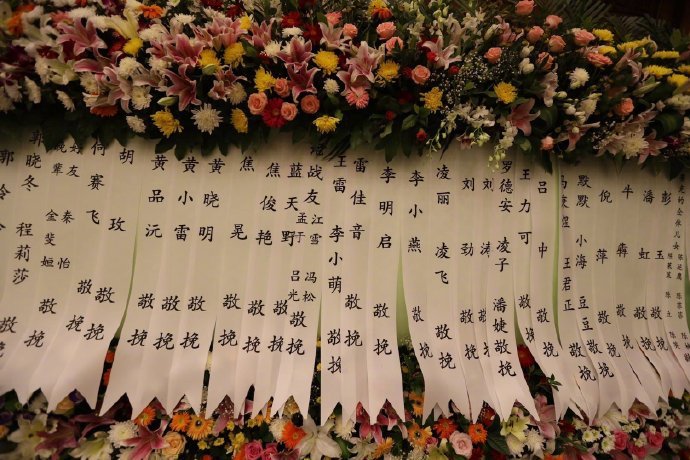 彭玉 敬挽
潘虹 敬挽
牛犇 敬挽
倪萍 敬挽
默默 小海 豆豆 敬挽
王君正
吕中 敬挽
王力可 敬挽
罗德安 凌子 潘婕敬挽
刘涛 敬挽
刘劲 敬挽
凌丽 凌飞 敬挽
李小燕 敬挽
李明启 敬挽
雷佳音 敬挽
王雷 李小萌 敬挽
战友 江雪 冯松 吕光 敬挽
蓝天野 敬挽
焦俊艳 敬挽
焦晃 敬挽
黄晓明 敬挽
黄小雷 敬挽
黄品沅 敬挽
胡玫 敬挽
何赛飞 敬挽
好友 秦怡 敬挽
金斐姮 敬挽
郭晓冬 程莉莎